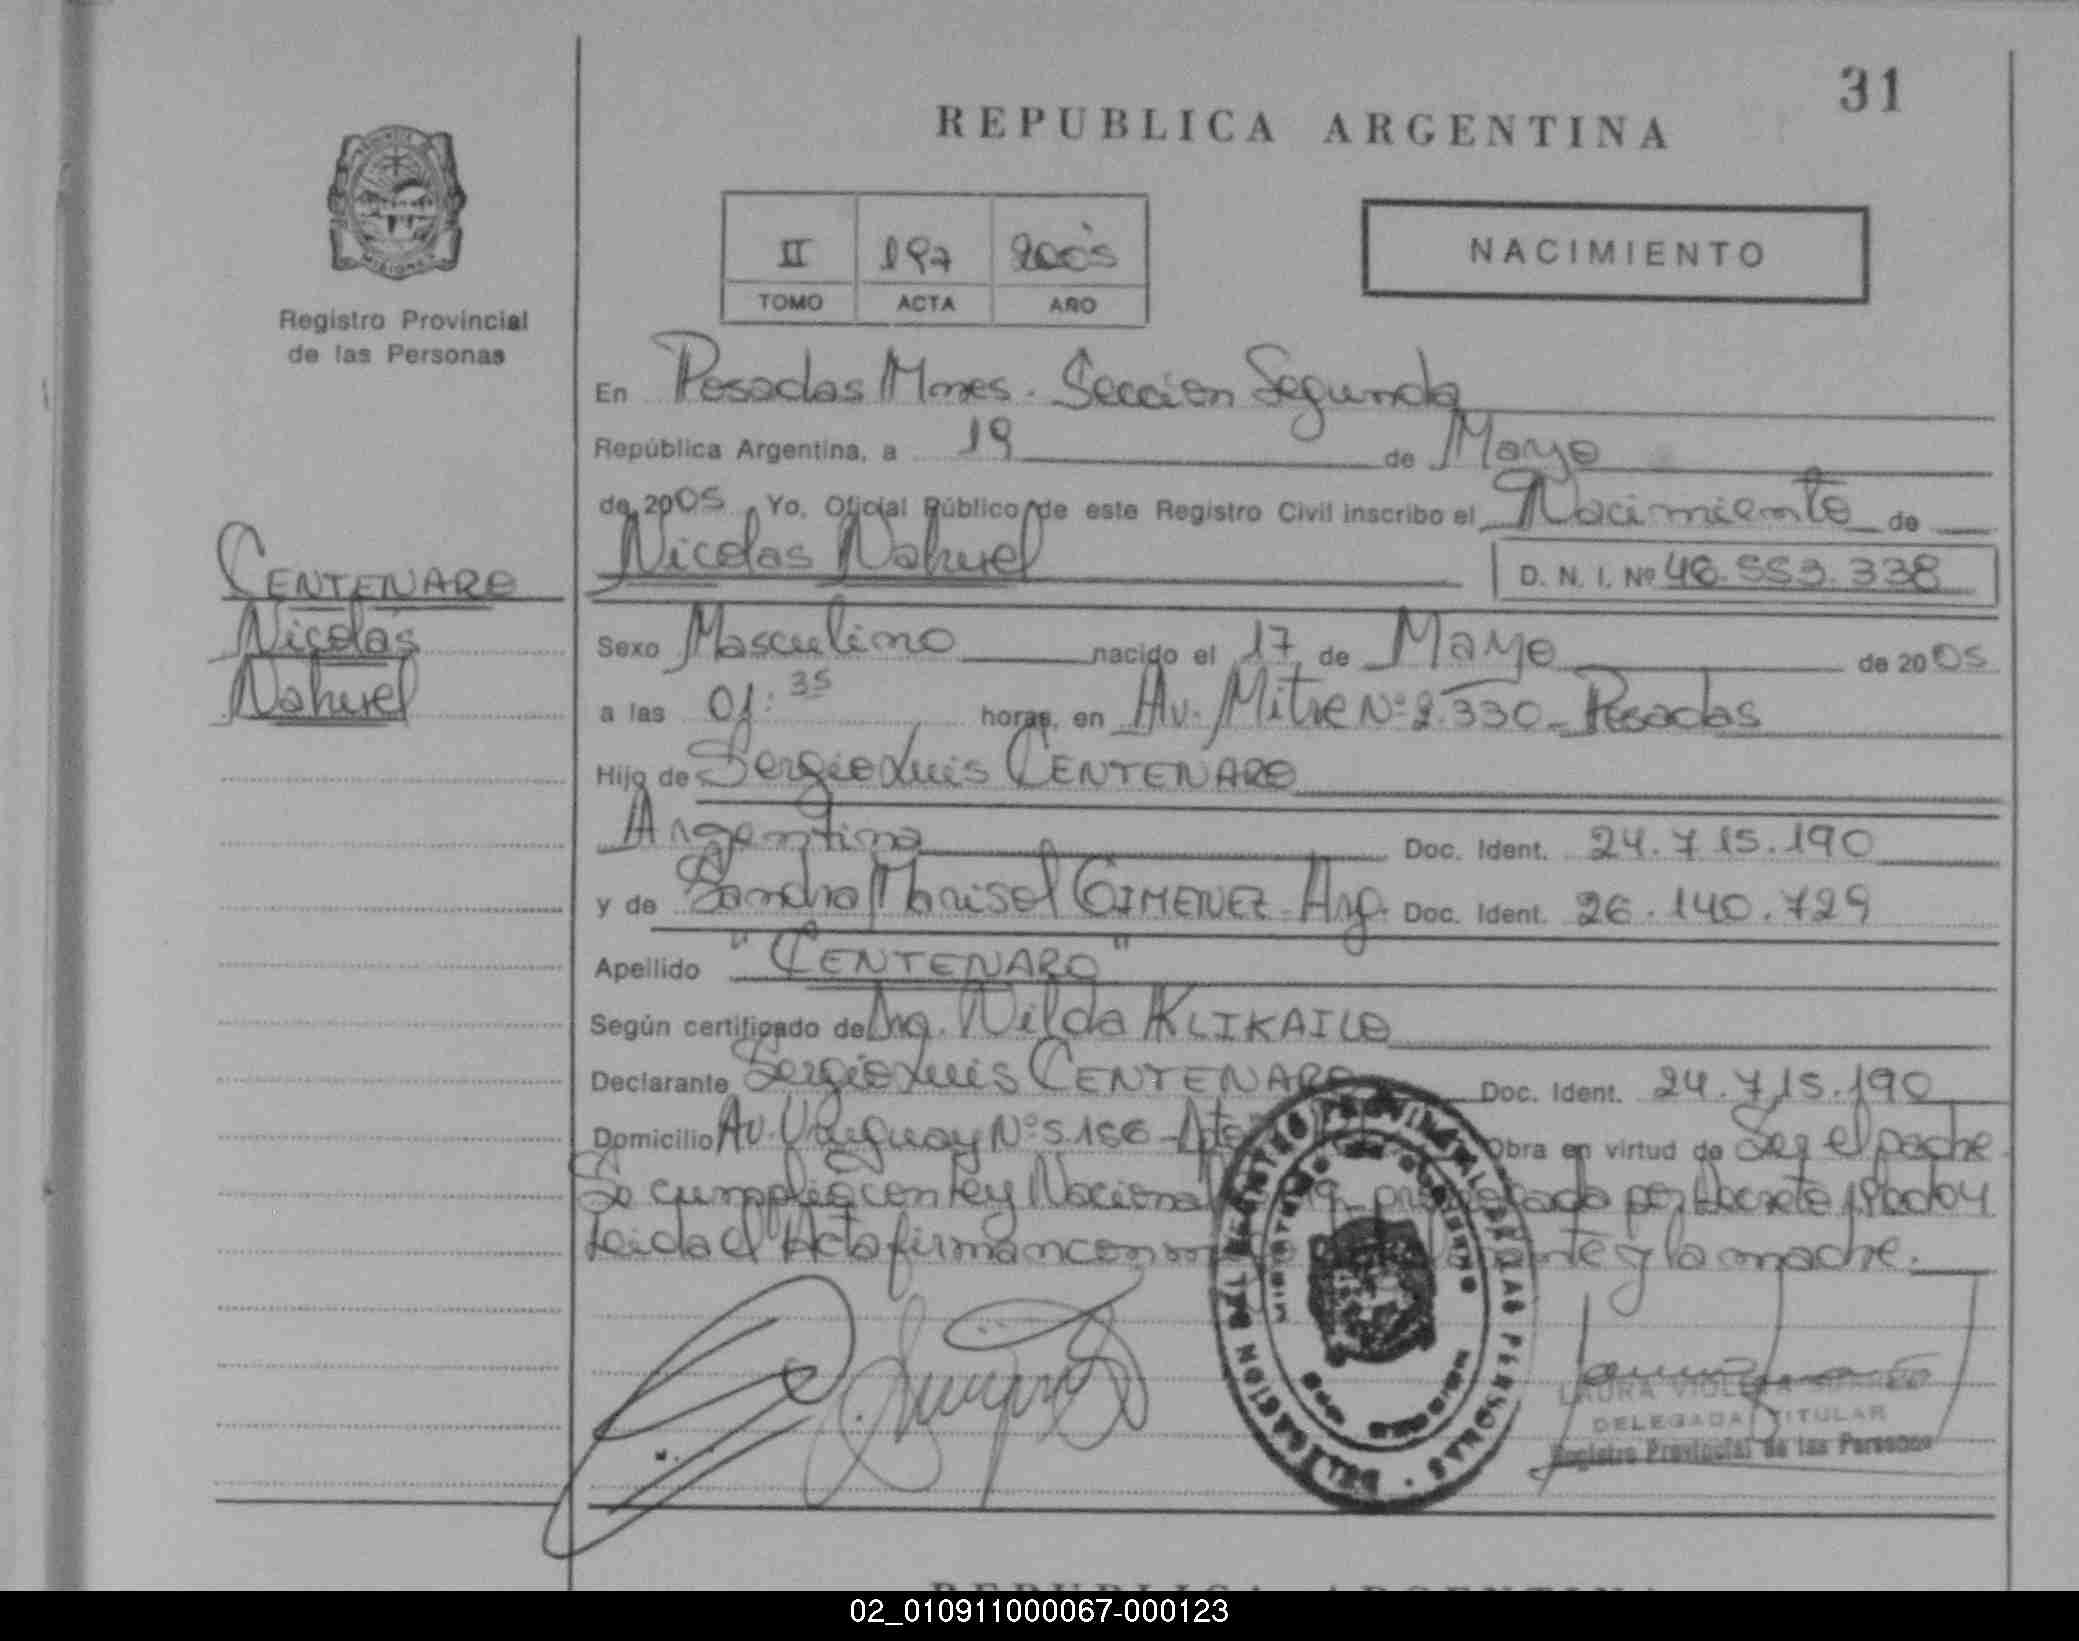 31
REPUBLICA ARGENTINA
PROVINCIA
MISIONES
Registro Provincial
de las Personas
II 197 2005
TOMO ACTA AÑO
NACIMIENTO
En Posadas Mnes. Sección Segunda
República Argentina, a 19 de Mayo
de 2005 Yo, Oficial Público de este Registro Civil inscribo el Nacimiento de
Nicolas Nahuel
D. N. I. Nº 46.553.338
CENTENARO
Nicolás
Nahuel
Sexo Masculino nacido el 17 de Mayo de 2005
a las 01:35 horas, en Av. Mitre Nº 2.330 - Posadas
Hijo de Sergio Luis CENTENARO
Argentino Doc. Ident. 24.715.190
y de Sandra Marisol GIMENEZ - Arg. Doc. Ident. 26.140.729
Apellido "CENTENARO"
Según certificado de Nilda KLIKAILO
Declarante Sergio Luis CENTENARO Doc. Ident. 24.715.190
Domicilio Av. Uruguay Nº 5.166 - Obra en virtud de Ser el padre
Se cumplió con Ley Nacional por Decreto
Leida el Acta firman y la madre.
DELEGACION DEL REGISTRO PROVINCIAL DE LAS PERSONAS
MINISTERIO DE GOBIERNO
LAURA VIOLETA SUAREZ
DELEGADA TITULAR
Registro Provincial de las Personas
REPUBLICA ARGENTINA
02_010911000067-000123